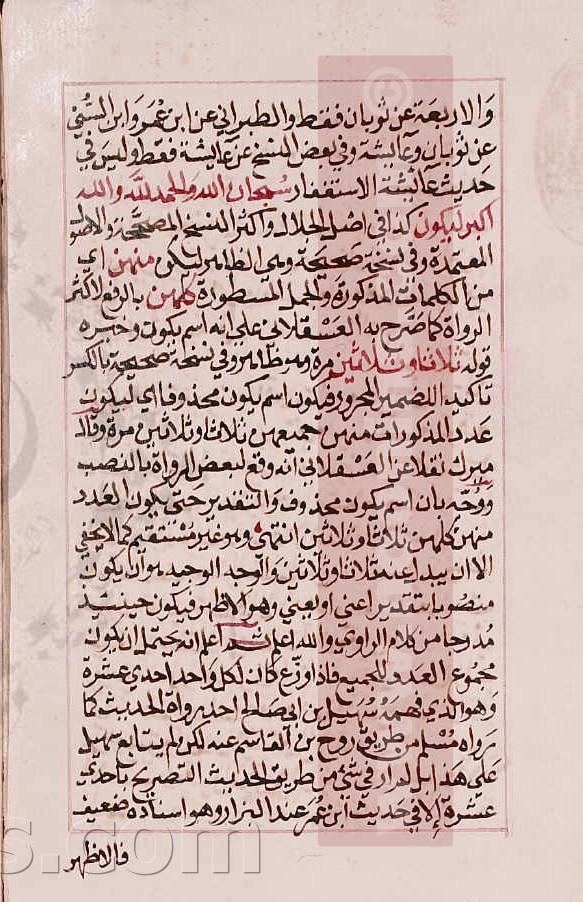 والاربعة عن ثوبان فقط والطبراني عن ابن عمر وابن السني
عن ثوبان وعائشة وفي بعض النسخ عن عائشة فقط وليس في
حديث عائشة الاستغفار سبحان الله والحمد لله والله
اكبر ليكون كذا في اصل الجلال واكثر النسخ المصححة والاصول
المعتمدة وفي نسخة صحيحة وهي الظاهر ليكن منهن اي
من الكلمات المذكورة والجمل المسطورة كلهن بالرفع لاكثر
الرواة كما صرح به العسقلاني على انه اسم يكون وخبره
قوله ثلاثا وثلاثين مرة وهو ظاهر وفي نسخة صحيحة بالكسر
تاكيد للضمير المجرور فيكون اسم يكون محذوفا اي ليكون
عدد المذكورات منهن جميعهن ثلاثا وثلاثين مرة وقال
ميرك نقلا عن العسقلاني انه وقع لبعض الرواة بالنصب
ووجه بان اسم يكون محذوف والتقدير حتى يكون العدد
منهن كلهن ثلاثا وثلاثين انتهى وهو غير مستقيم كما لا يخفى
الا ان يبدل عنه ثلاثا وثلاثين والوجه الوحيد هو ان يكون
منصوبا بتقدير اعني او يعني وهو الاظهر فيكون حينئذ
مدرجا من كلام الراوي والله اعلم ثم اعلم انه يحتمل ان يكون
مجموع العدد للجميع فاذا وزع كان لكل واحد احدي عشرة
وهو الذي فهمه سهيل بن ابي صالح احد رواة الحديث كما
رواه مسلم من طريق روح بن القاسم عنه لكن لم يتابع سهيل
علي هذا بل لم ار في شئ من طريق الحديث التصريح باحدي
عشرة الا في حديث ابن عمر عند البزار وهو اسناده ضعيف
فالاظهر
s.com